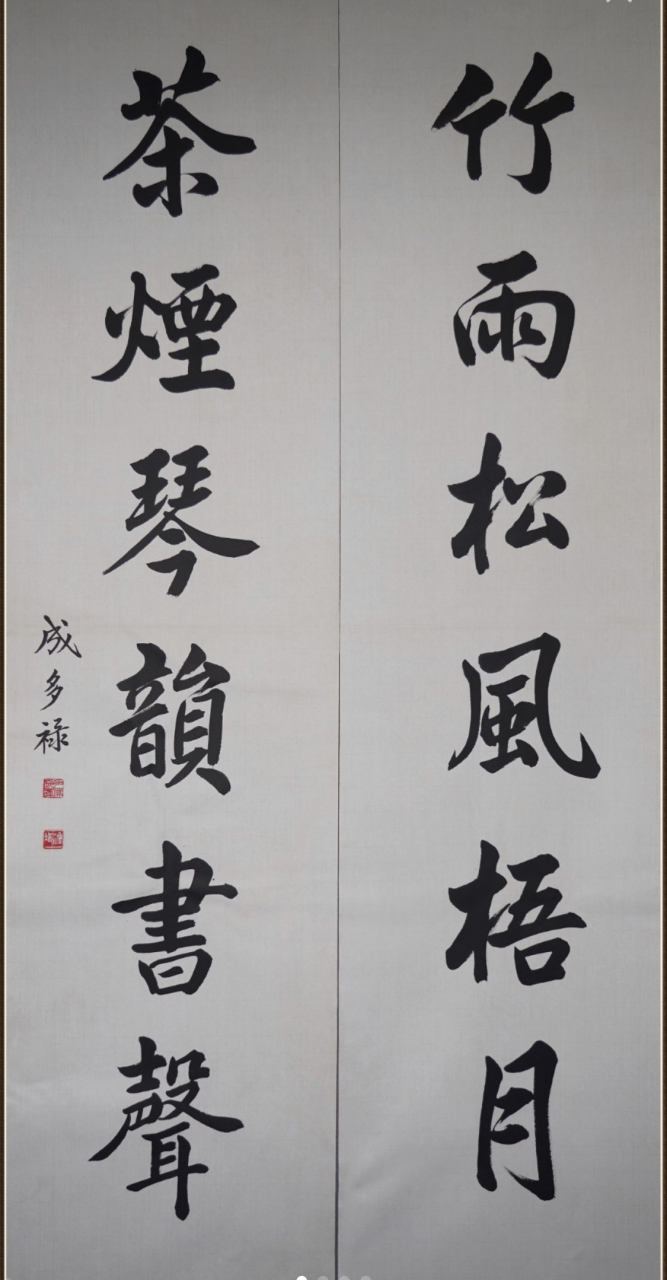 竹雨松風梧月
茶煙琴韻書聲
成多祿